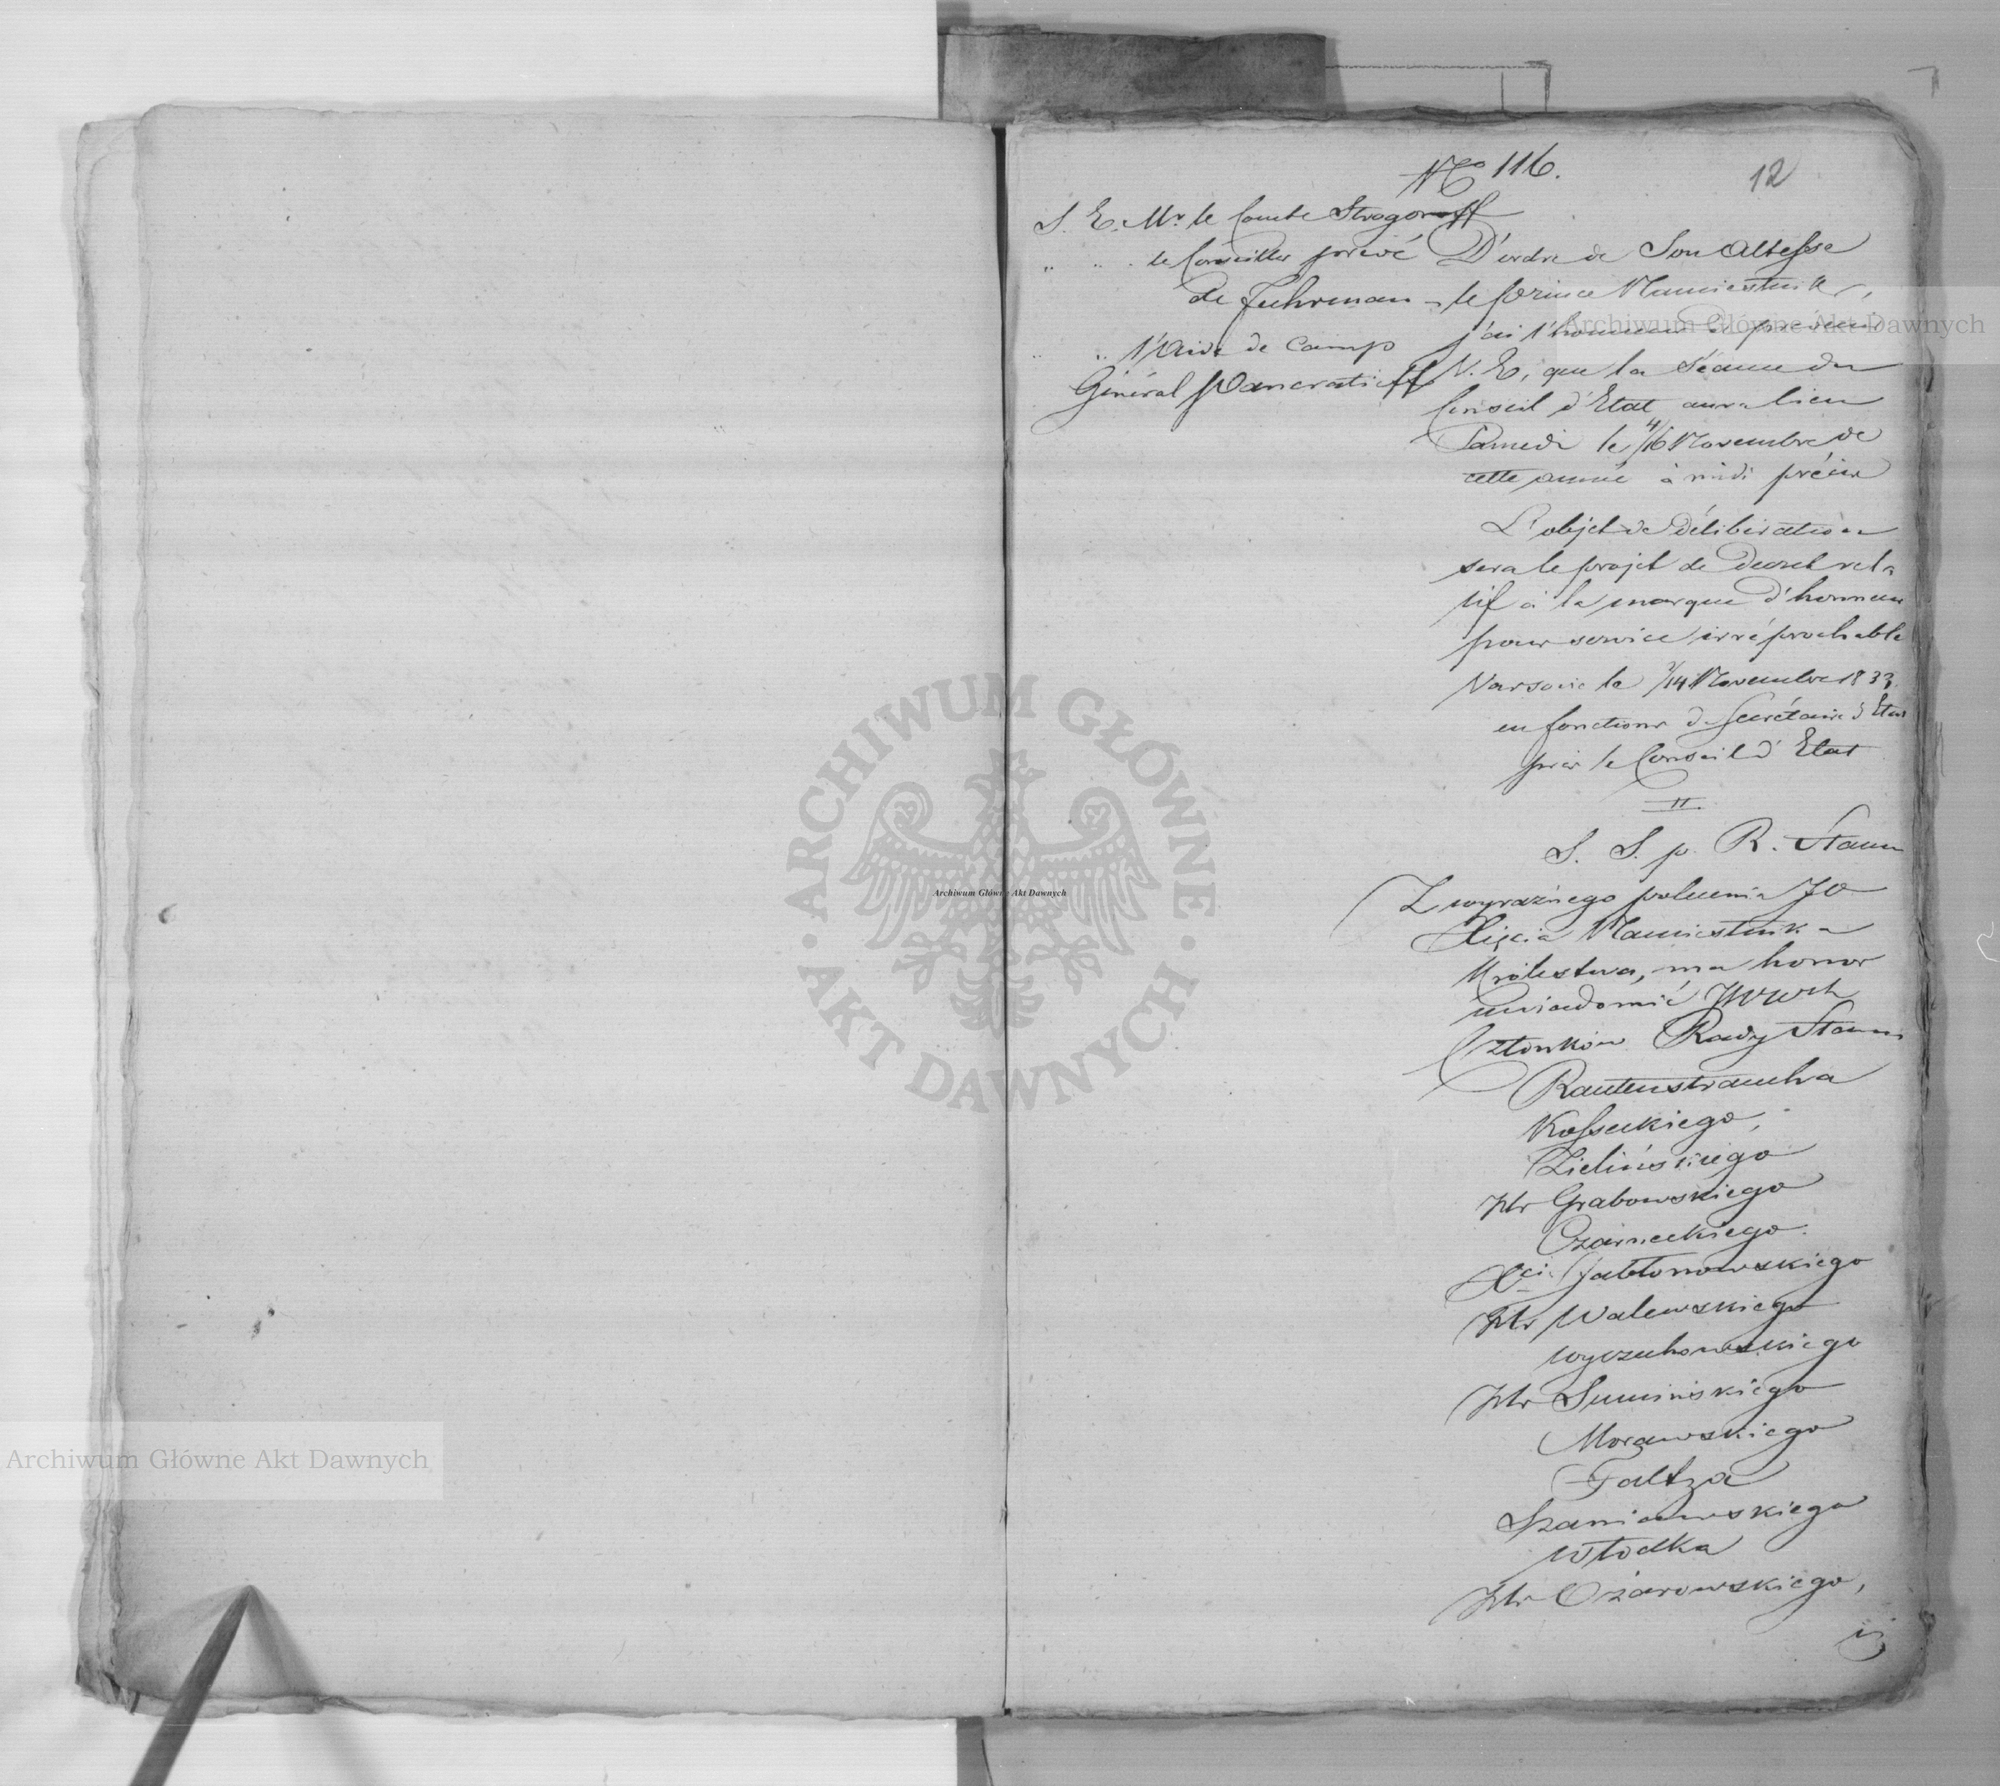 No 116.
12
S. E. Mr. le Comte Strogonoff
" " le Conseiller privé
de Fuhrman
" " l'Aide de Camp
Général Pancratieff
D'ordre de Son Altesse
le prince Namiestnik,
j'ai l'honneur de prévenir
V. E, que la séance du
Conseil d'Etat aura lieu
Samedi le 4/16 Novembre de
cette année à midi précis
L'objet de délibération
sera le projet de Decret rela
tif à la marque d'honneur
pour service irréprochable
Varsovie le 2/14 Novembre 1833.
en fonctions de Secrétaire d'Etat
près le Conseil d'Etat
II.
S. S. p. R. Stanu
Z wyraźnego polecenia JO
Xięcia Namiestnika
Królestwa, ma honor
uwiadomić JWWch
Członków Rady Stanu
Rautenstraucha
Kosseckiego,
Zielińskiego
Hr Grabowskiego
Czarneckiego.
Xcia Jabłonowskiego
Hr Walewskiego
Wyczechowskiego
Hr Sumińskiego
Morawskiego
Faltza
Szaniawskiego
Włodka
Hr Ożarowskiego,
iż
Archiwum Główne Akt Dawnych
Archiwum Główne Akt Dawnych
Archiwum Główne Akt Dawnych
ARCHIWUM GŁÓWNE · AKT DAWNYCH ·